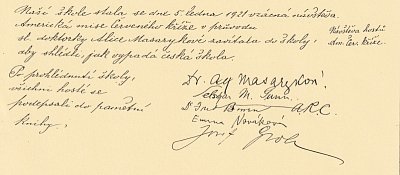 Naší škole stala se dne 5. ledna 1921 vzácná návštěva.
Americká mise Červeného kříže v průvodu
sl. doktorky Alice Masarykové zavítala do školy,
aby shlédla, jak vypadá česká škola.
Návštěva hostů
Am. Čer. kříže.
Po prohlédnutí školy,
všichni hosté se
podepsali do pamětní
knihy,
Dr. Ag Masaryková
Edgar M.
A.R.C.
Emma Nováková
Josef